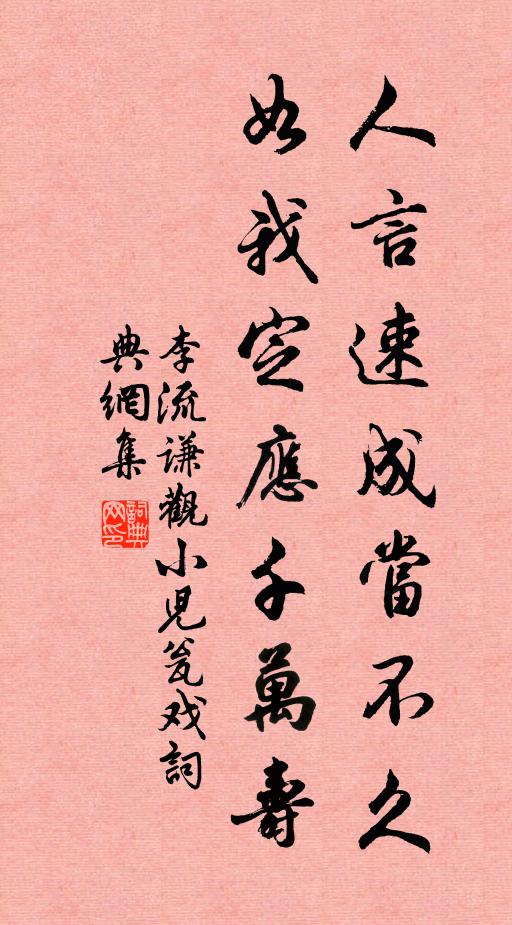 人言速成當不久
如我定應千萬壽
李流谦觀小児瓮戏詞
典網集
詞典网印